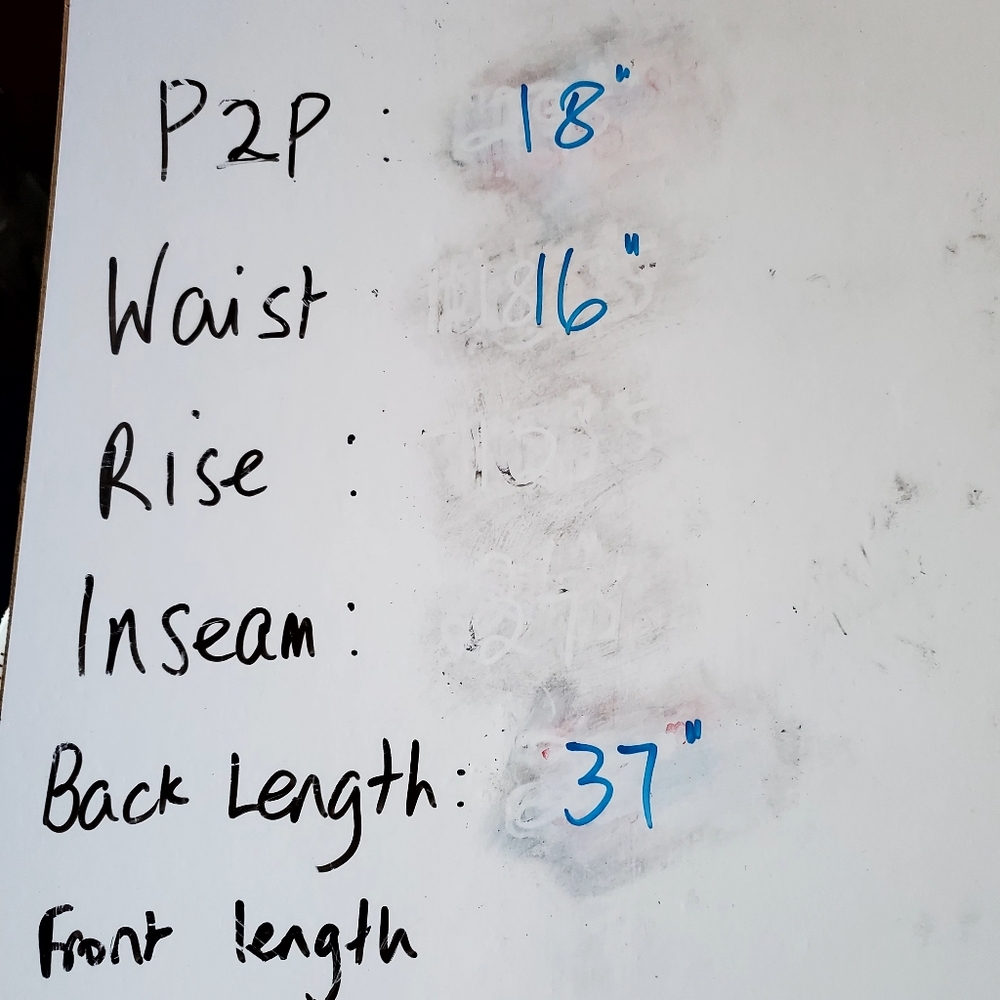 P2P : 18"
Waist : 16"
Rise :
Inseam :
Back Length : 37"
Front length